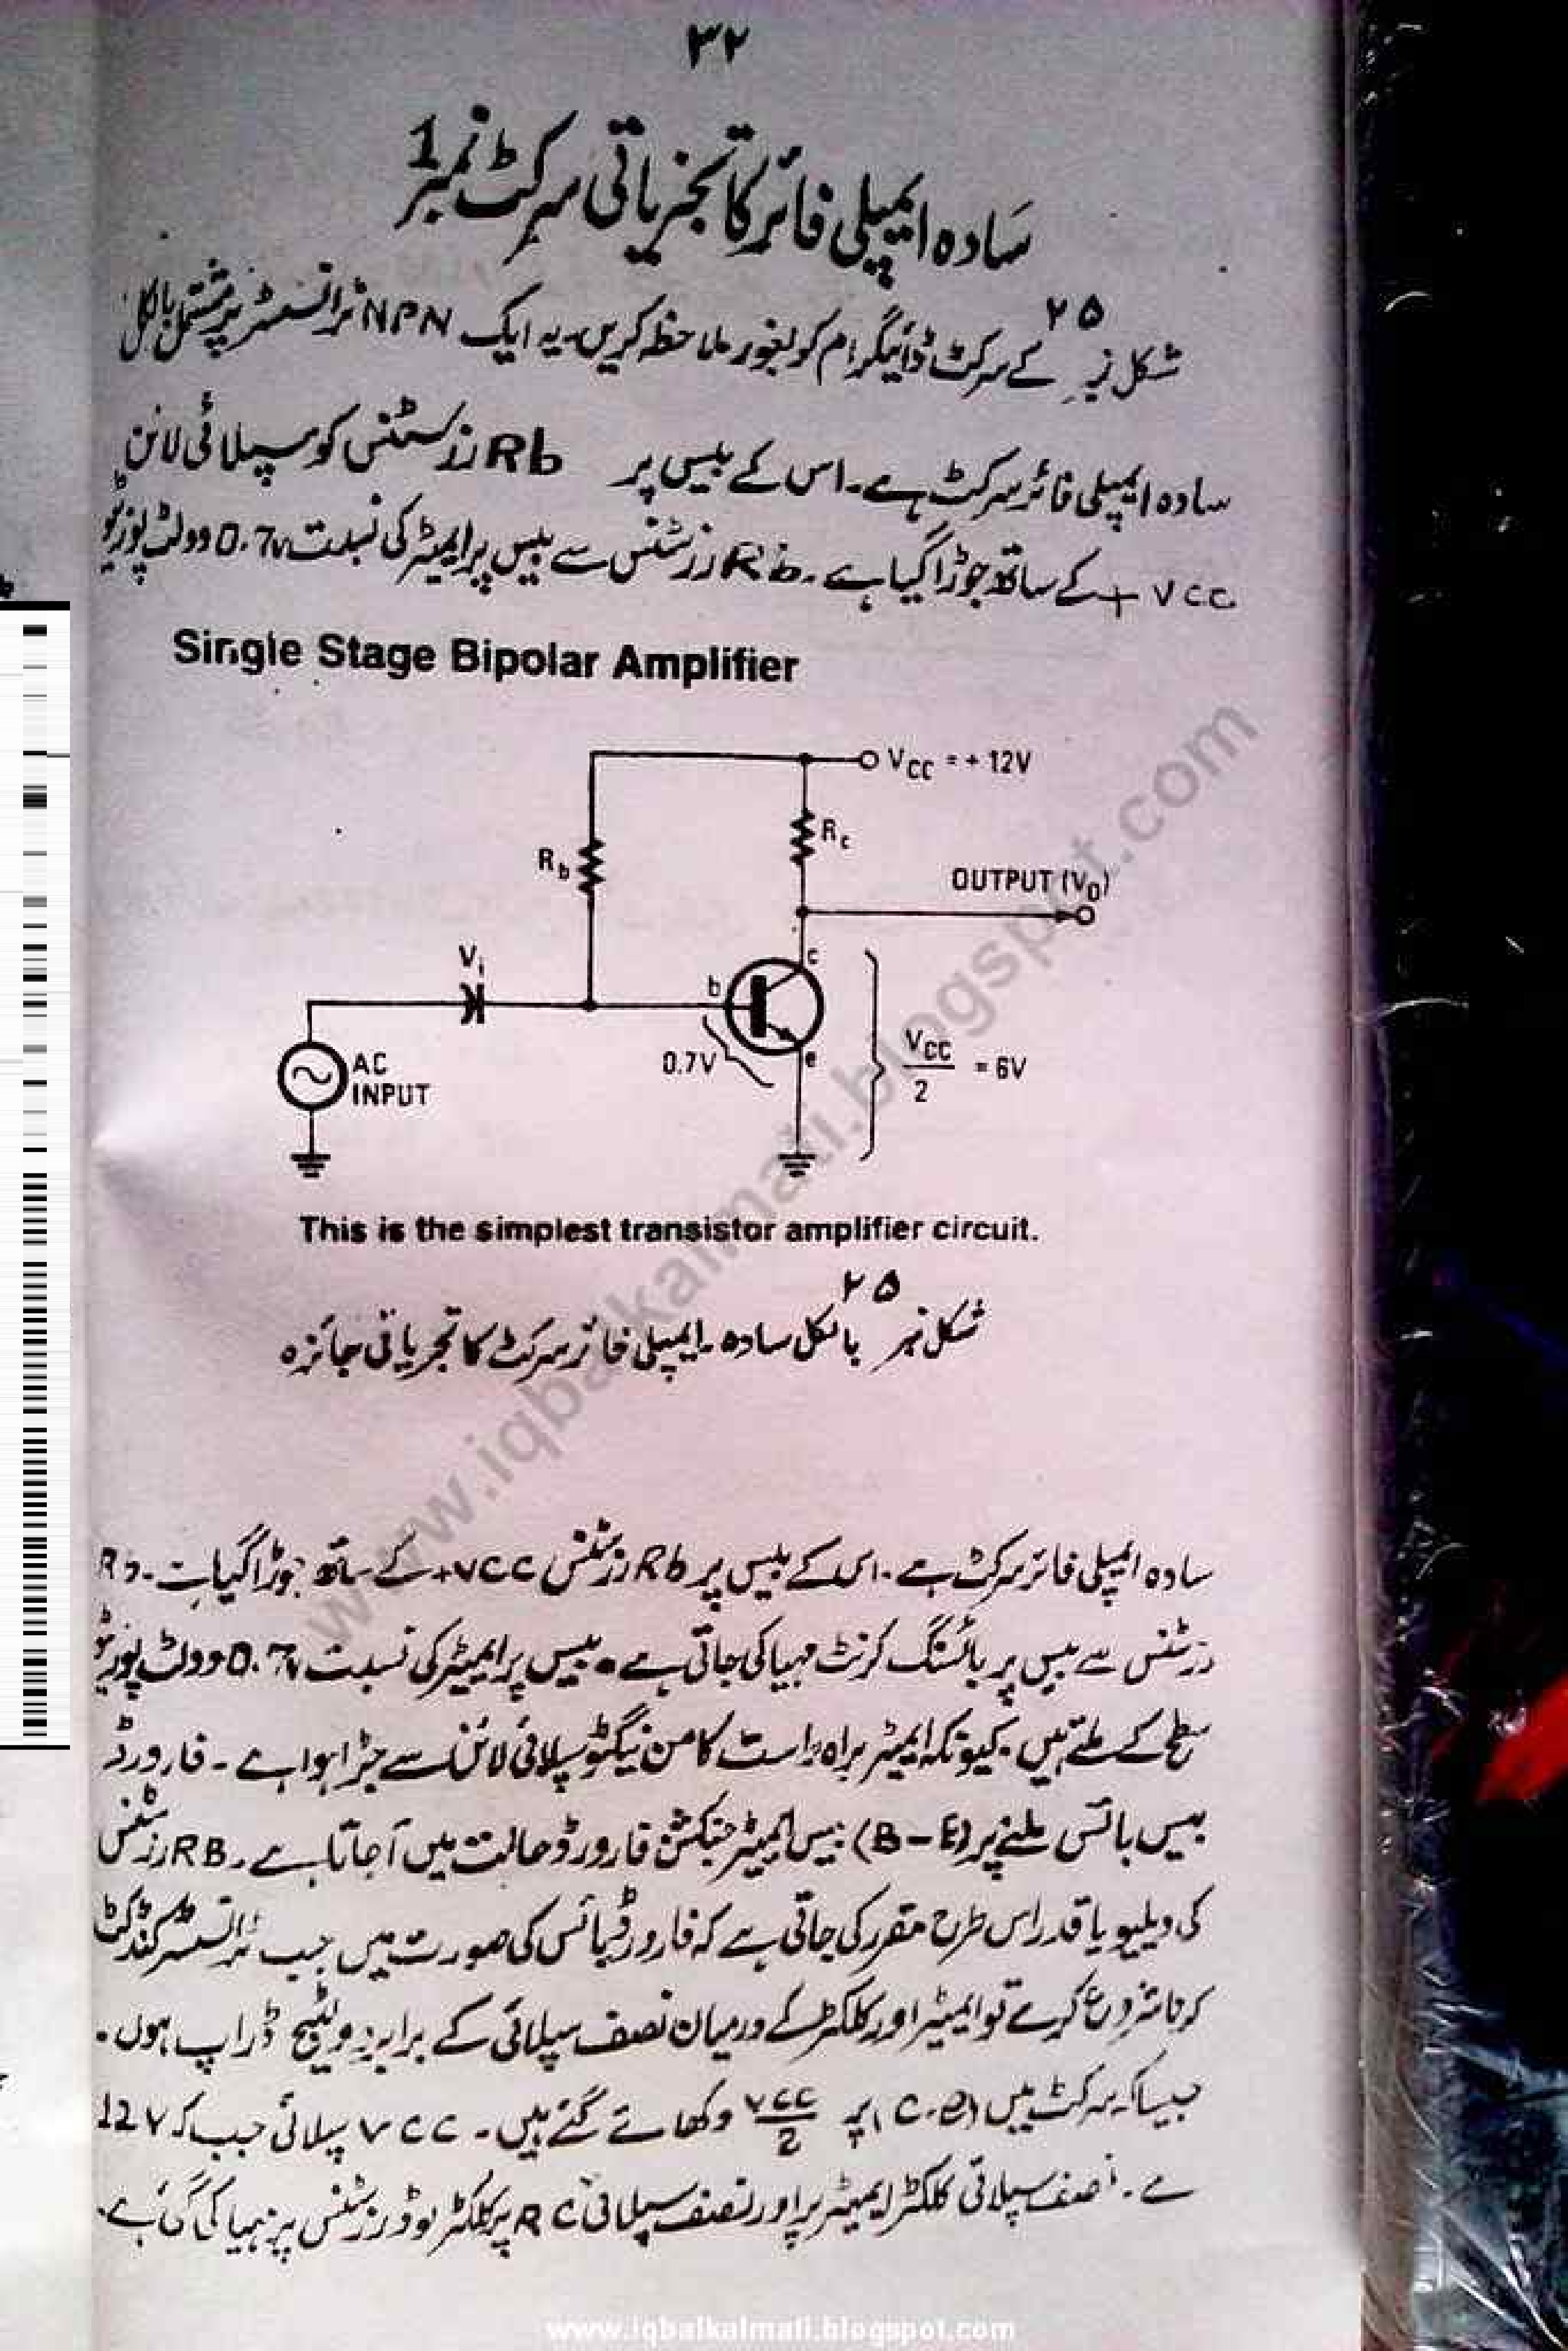 ۳۲
سادہ ایمپلی فائر کا تجزیاتی سرکٹ نمبر 1
شکل نمبر ۲۵ کے سرکٹ ڈائیگرام کو بغور ملاحظہ کریں۔ یہ ایک NPN ٹرانسسٹر پر مشتمل بالکل
سادہ ایمپلی فائر سرکٹ ہے۔ اس کے بیس پر Rb رزسٹنس کو سپلائی لائن
+VCC کے ساتھ جوڑا گیا ہے۔ Rb رزسٹنس سے بیس پر ایمیٹر کی نسبت 0.7v وولٹ پوزیٹو
Single Stage Bipolar Amplifier
VCC = + 12V
Rc
Rb
OUTPUT (VO)
Vi
c
b
e
0.7V
AC
INPUT
VCC/2 = 6V
This is the simplest transistor amplifier circuit.
شکل نمبر ۲۵ بالکل سادہ ایمپلی فائر سرکٹ کا تجزیاتی جائزہ
سادہ ایمپلی فائر سرکٹ ہے۔ اس کے بیس پر Rb رزسٹنس +VCC کے ساتھ جوڑا گیا ہے۔ Rb
رزسٹنس سے بیس پر بائسنگ کرنٹ مہیا کی جاتی ہے۔ بیس پر ایمیٹر کی نسبت 0.7v وولٹ پوزیٹو
سطح کے ملتے ہیں۔ کیونکہ ایمیٹر براہ راست کامن نیگٹو سپلائی لائن سے جڑا ہوا ہے۔ فارورڈ
بیس بائس ملنے پر (B-E) بیس ایمیٹر جنکشن فارورڈ حالت میں آ جاتا ہے۔ RB رزسٹنس
کی ویلیو یا قدر اس طرح مقرر کی جاتی ہے کہ فارورڈ بائس کی صورت میں جب ٹرانسسٹر کنڈکٹ
کرنا شروع کرے تو ایمیٹر اور کلکٹر کے درمیان نصف سپلائی کے برابر وولٹیج ڈراپ ہوں۔
جیسا کہ سرکٹ میں (C-e) پر VCC/2 دکھائے گئے ہیں۔ VCC سپلائی جب کہ 12V
ہے۔ نصف سپلائی کلکٹر ایمیٹر پر اور نصف سپلائی RC پر کلکٹر لوڈ رزسٹنس پر مہیا کی گئی ہے۔
www.iqbalkalmati.blogspot.com
www.iqbalkalmati.blogspot.com